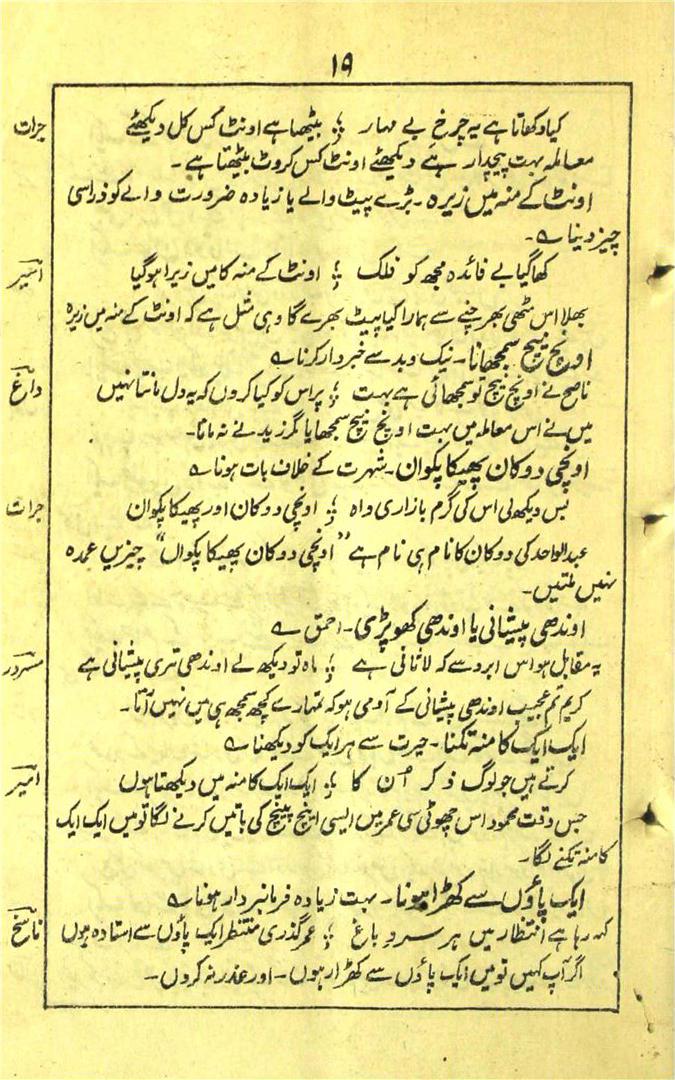 ۱۹
کیا دکھاتا ہے یہ چرخ بے مہار ؛ بیٹھا ہے اونٹ کس کل دیکھئے جرات
معاملہ بہت پیچدار ہے دیکھئے اونٹ کس کروٹ بیٹھتا ہے۔
اونٹ کے منہ میں زیرہ۔ بڑے پیٹ والے یا زیادہ ضرورت والے کو ذراسی
چیز دینا ے۔
کھا گیا بے فائدہ مجھ کو فلک ؛ اونٹ کے منہ کا میں زیرا ہو گیا اسیر
بھلا اس مٹھی بھر چنے سے ہمارا کیا پیٹ بھرے گا وہی مثل ہے کہ اونٹ کے منہ میں زیرہ
اونچ نیچ سمجھانا۔ نیک و بد سے خبردار کرنا ے
ناصح نے اونچ نیچ تو سمجھائی ہے بہت ؛ پر اس کو کیا کروں کہ یہ دل مانتا نہیں داغ
میں نے اس معاملہ میں بہت اونچ نیچ سمجھایا مگر زید نے نہ مانا۔
اونچی دوکان پھیکا پکوان۔ شہرت کے خلاف بات ہونا ے
بس دیکھ لی اس کی گرم بازاری واہ ؛ اونچی دوکان اور پھیکا پکوان جرات
عبدالواحد کی دوکان کا نام ہی نام ہے "اونچی دوکان پھیکا پکوان" چیزیں عمدہ
نہیں ملتیں۔
اوندھی پیشانی یا اوندھی کھوپڑی۔ احمق ے
یہ مقابل ہو اس ابرو سے کہ لاثانی ہے ؛ ماہ تو دیکھ لے اوندھی تری پیشانی ہے مسرور
کریم تم عجیب اوندھی پیشانی کے آدمی ہو کہ تمہارے کچھ سمجھ ہی میں نہیں آتا۔
ایک ایک کا منہ تکنا۔ حیرت سے ہر ایک کو دیکھنا ے
کرتے ہیں جو لوگ ذکر اُن کا ؛ ایک ایک کا منہ میں دیکھتا ہوں امیر
جس وقت محمود اس چھوٹی سی عمر میں ایسی اینچ پینچ کی باتیں کرنے لگا تو میں ایک ایک
کا منہ تکنے لگا۔
ایک پاؤں سے کھڑا ہونا۔ بہت زیادہ فرمانبردار ہونا ے
کہ رہا ہے انتظار میں ہر سرو باغ ؛ عمر گذری منتظر ایک پاؤں سے استادہ ہوں ناسخ
اگر آپ کہیں تو میں ایک پاؤں سے کھڑا رہوں۔ اور عذر نہ کروں۔